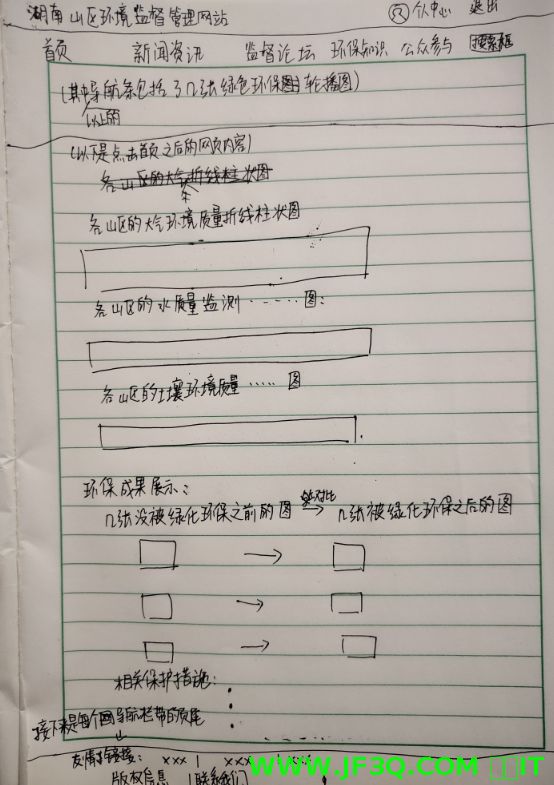 湖南山区环境监督管理网站 个人中心 退出
首页 新闻资讯 监督论坛 环保知识 公众参与 搜索框
(其中导航条包括了几张绿色环保图片轮播图)
以上的
(以下是点击首页之后的网页内容)
各山区的大气折线柱状图
各山区的大气环境质量折线柱状图
各山区的水质量监测……图:
各山区的土壤环境质量……图
环保成果展示:
几张没被绿化环保之前的图 对比 → 几张被绿化环保之后的图
→
→
→
相关保护措施:
接下来是每个网导航栏带的页尾
友情链接: xxx | xxx
版权信息 | 联系我们
WWW.JF3Q.COM IT